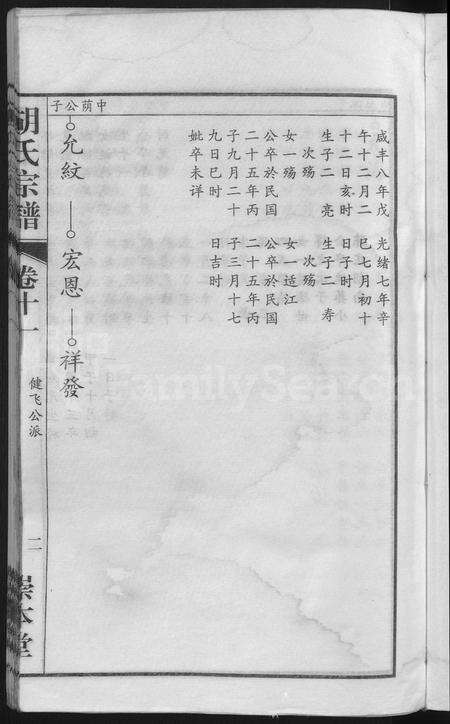 咸丰八年戊
午十二月二
十二日亥时
生子二 亮
次殇
女一殇
公卒於民国
二十五年丙
子九月二十
九日巳时
妣卒未详
光绪七年辛
巳七月初十
日子时
生子二 寿
次殇
女一适江
公卒於民国
二十五年丙
子三月十七
日吉时
中荫公子
允紋
宏恩
祥發
胡氏宗譜
卷十一
健飞公派
二
崇本堂
FamilySearch